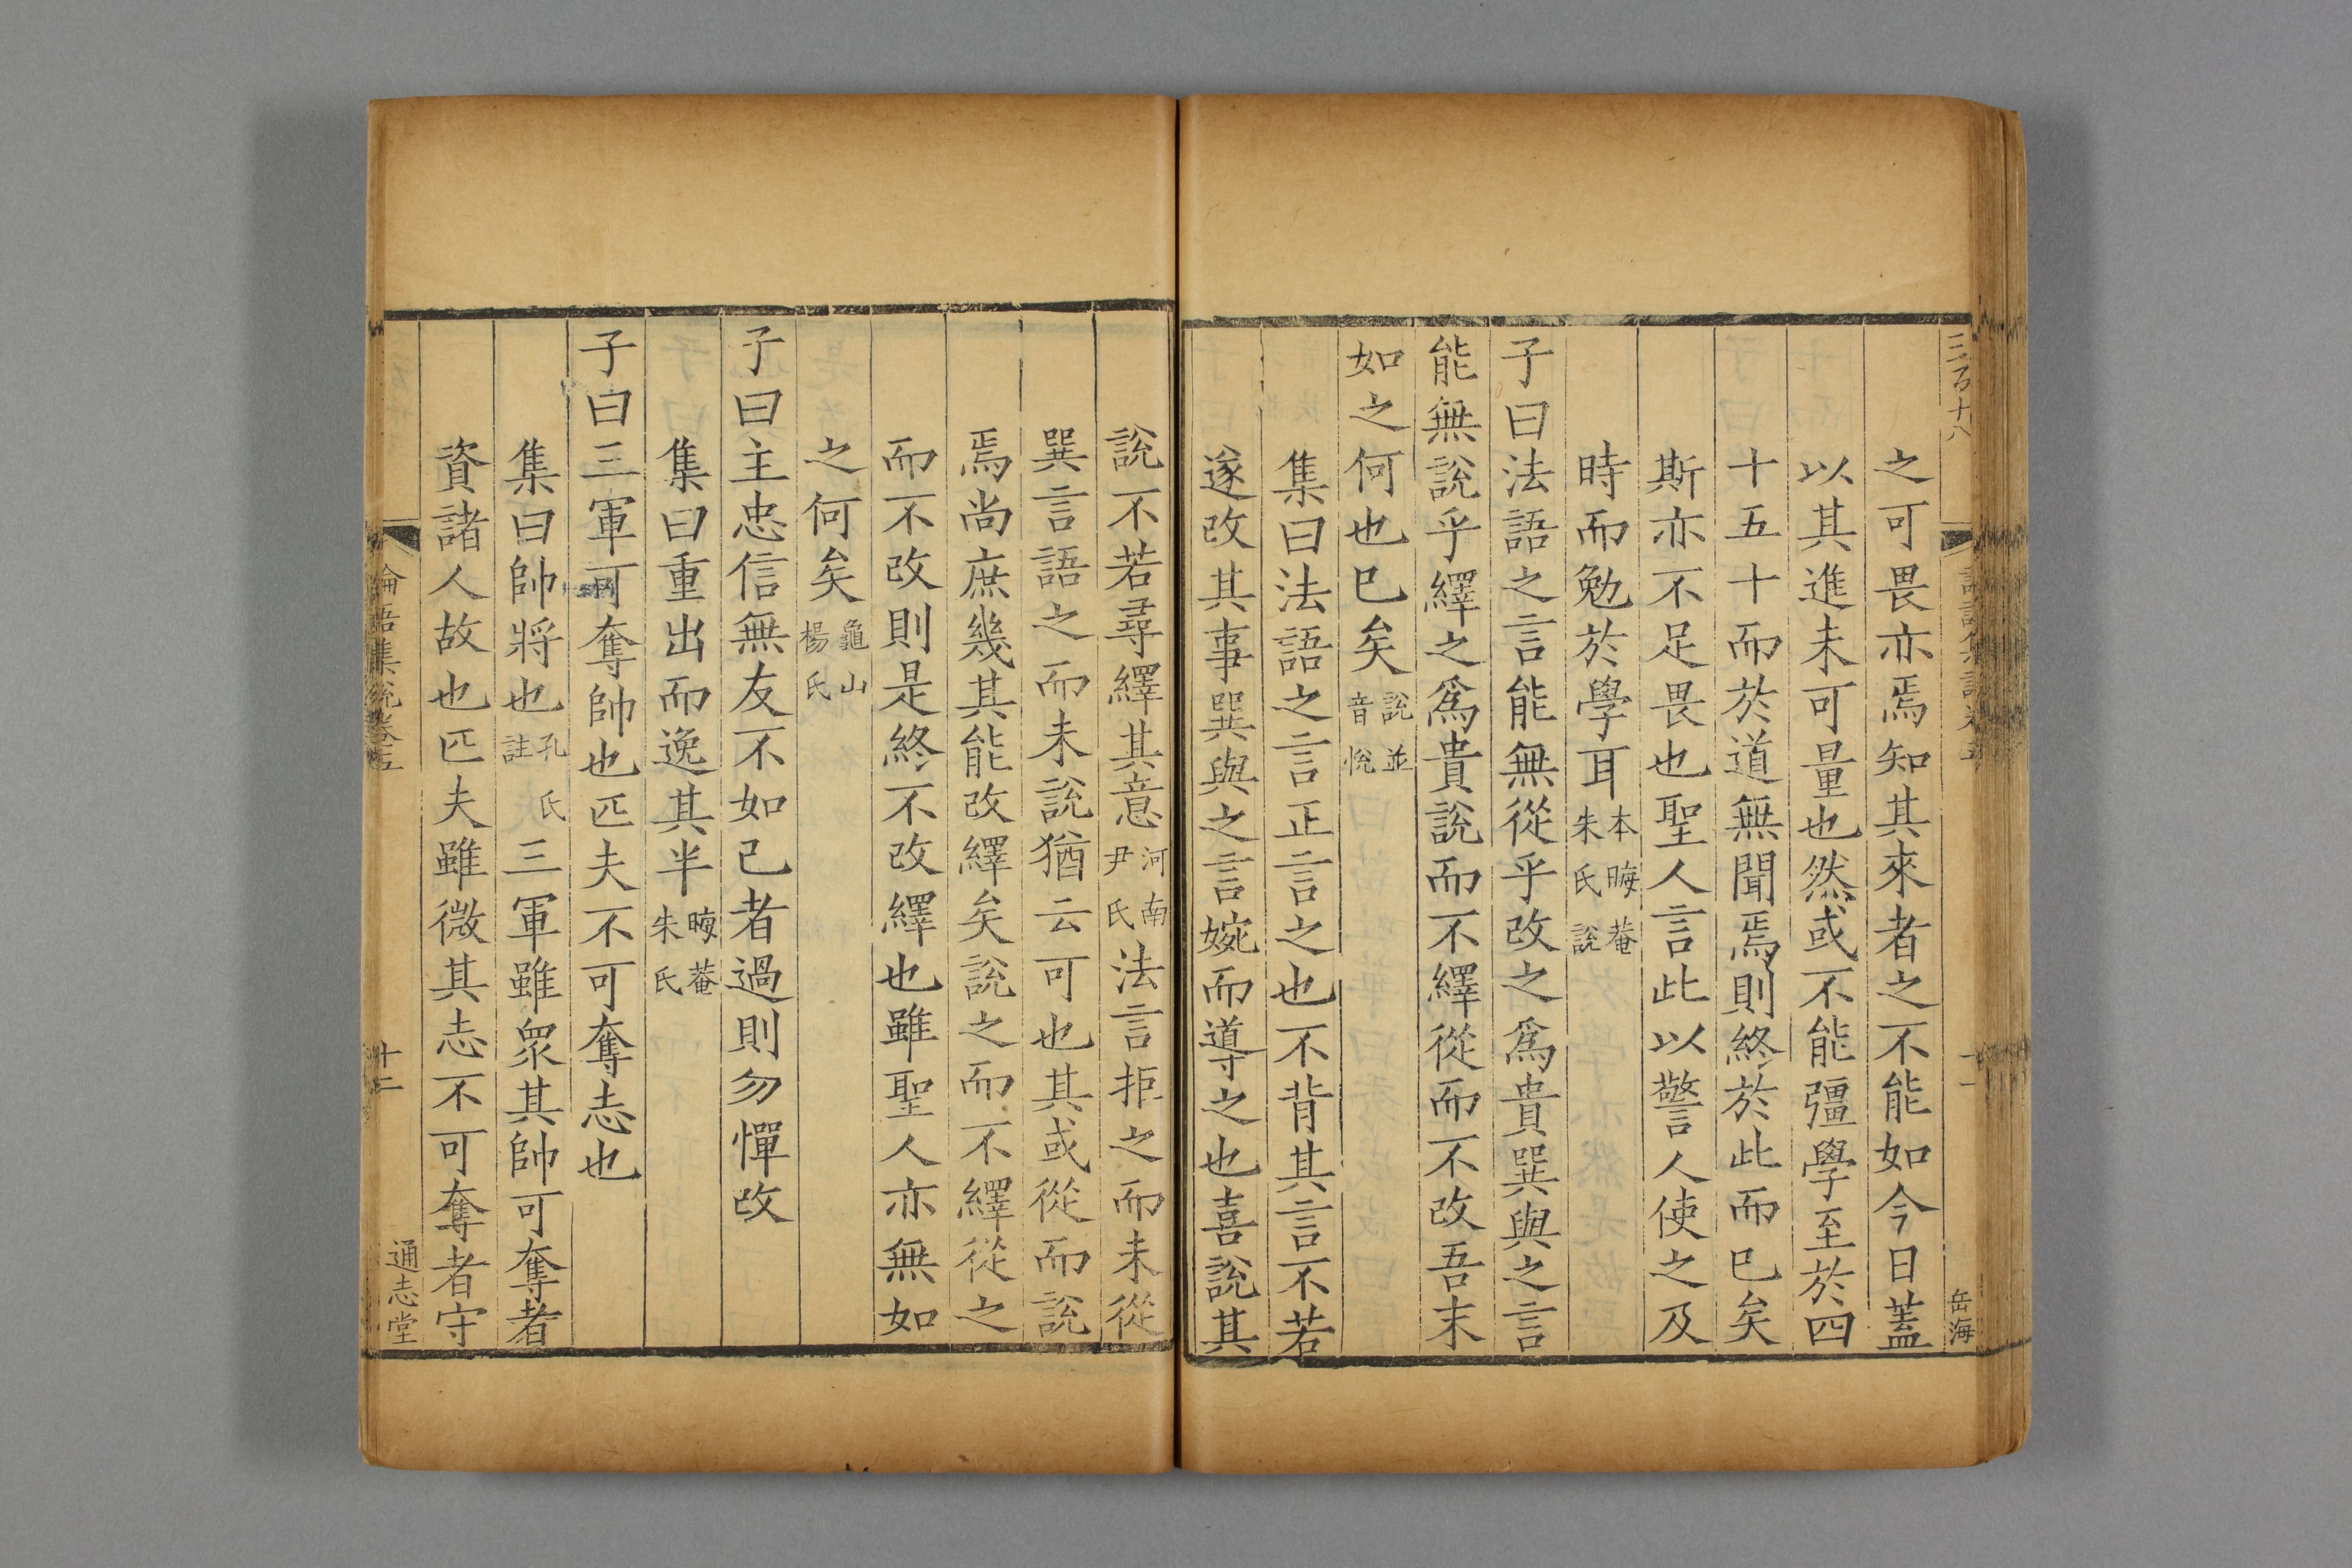 三百十八
岳海
之可畏亦焉知其來者之不能如今日蓋
以其進未可量也然或不能彊學至於四
十五十而於道無聞焉則終於此而已矣
斯亦不足畏也聖人言此以警人使之及
時而勉於學耳本晦菴朱氏說
子曰法語之言能無從乎改之為貴巽與之言
能無說乎繹之為貴說而不繹從而不改吾末
如之何也已矣說並音悅
集曰法語之言正言之也不背其言不若
遂改其事巽與之言婉而導之也喜說其
說不若尋繹其意河南尹氏法言拒之而未從
巽言語之而未說猶云可也其或從而說
焉尚庶幾其能改繹矣說之而不繹從之
而不改則是終不改繹也雖聖人亦無如
之何矣龜山楊氏
子曰主忠信無友不如己者過則勿憚改
集曰重出而逸其半晦菴朱氏
子曰三軍可奪帥也匹夫不可奪志也
集曰帥將也孔氏註三軍雖眾其帥可奪者
資諸人故也匹夫雖微其志不可奪者守
論語集說卷五
十二
通志堂